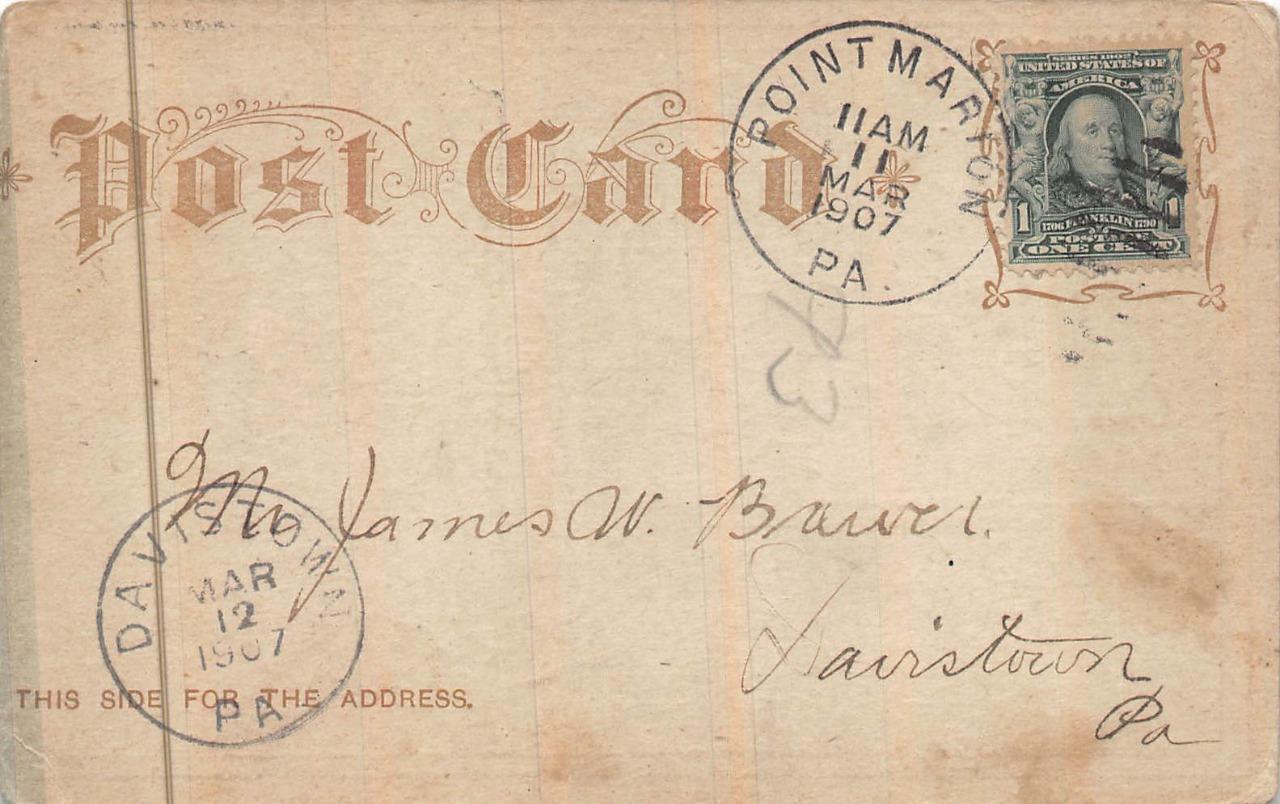 Post Card
POINT MARION
11 AM
11
MAR
1907
PA.
SERIES 1902
UNITED STATES OF
AMERICA
1 1706 FRANKLIN 1790 1
POSTAGE
ONE CENT
43
Mr James W. Bawer.
Davistown
Pa
DAVISTOWN
MAR
12
1907
PA
THIS SIDE FOR THE ADDRESS.